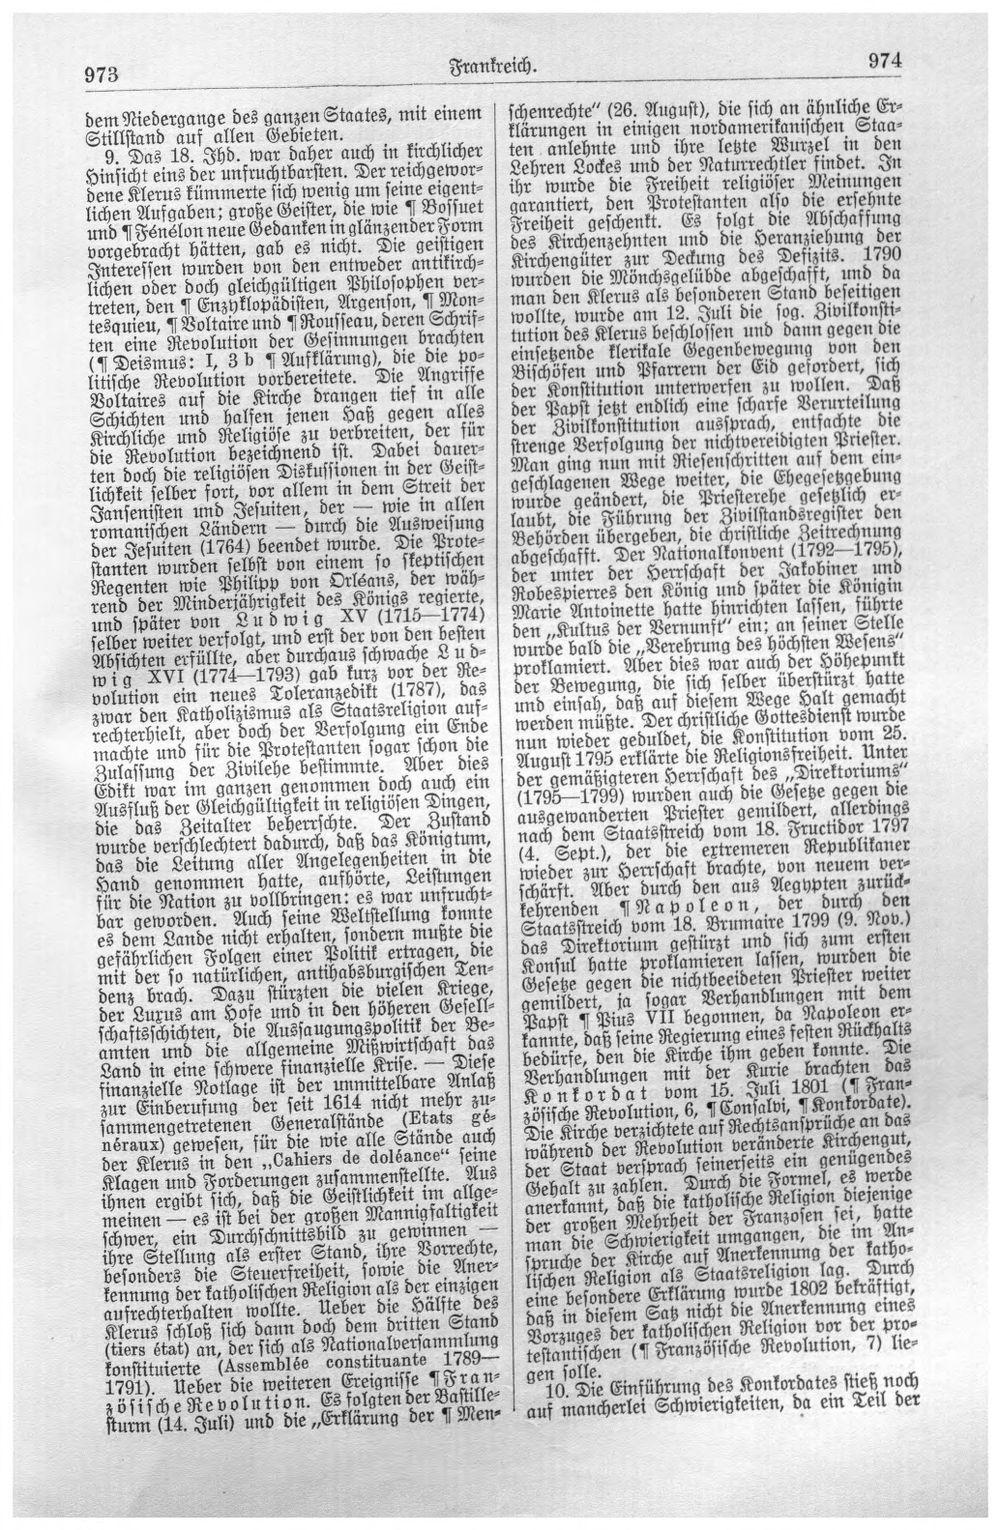 973
Frankreich.
974
dem Niedergange des ganzen Staates, mit einem
Stillstand auf allen Gebieten.
9. Das 18. Jhd. war daher auch in kirchlicher
Hinsicht eins der unfruchtbarsten. Der reichgewor-
dene Klerus kümmerte sich wenig um seine eigent-
lichen Aufgaben; große Geister, die wie ¶ Bossuet
und ¶ Fénélon neue Gedanken in glänzender Form
vorgebracht hätten, gab es nicht. Die geistigen
Interessen wurden von den entweder antikirch-
lichen oder doch gleichgültigen Philosophen ver-
treten, den ¶ Enzyklopädisten, Argenson, ¶ Mon-
tesquieu, ¶ Voltaire und ¶ Rousseau, deren Schrif-
ten eine Revolution der Gesinnungen brachten
(¶ Deismus: I, 3 b ¶ Aufklärung), die die po-
litische Revolution vorbereitete. Die Angriffe
Voltaires auf die Kirche drangen tief in alle
Schichten und halfen jenen Haß gegen alles
Kirchliche und Religiöse zu verbreiten, der für
die Revolution bezeichnend ist. Dabei dauer-
ten doch die religiösen Diskussionen in der Geist-
lichkeit selber fort, vor allem in dem Streit der
Jansenisten und Jesuiten, der — wie in allen
romanischen Ländern — durch die Ausweisung
der Jesuiten (1764) beendet wurde. Die Prote-
stanten wurden selbst von einem so skeptischen
Regenten wie Philipp von Orléans, der wäh-
rend der Minderjährigkeit des Königs regierte,
und später von Ludwig XV (1715—1774)
selber weiter verfolgt, und erst der von den besten
Absichten erfüllte, aber durchaus schwache Lud-
wig XVI (1774—1793) gab kurz vor der Re-
volution ein neues Toleranzedikt (1787), das
zwar den Katholizismus als Staatsreligion auf-
rechterhielt, aber doch der Verfolgung ein Ende
machte und für die Protestanten sogar schon die
Zulassung der Zivilehe bestimmte. Aber dies
Edikt war im ganzen genommen doch auch ein
Ausfluß der Gleichgültigkeit in religiösen Dingen,
die das Zeitalter beherrschte. Der Zustand
wurde verschlechtert dadurch, daß das Königtum,
das die Leitung aller Angelegenheiten in die
Hand genommen hatte, aufhörte, Leistungen
für die Nation zu vollbringen: es war unfrucht-
bar geworden. Auch seine Weltstellung konnte
es dem Lande nicht erhalten, sondern mußte die
gefährlichen Folgen einer Politik ertragen, die
mit der so natürlichen, antihabsburgischen Ten-
denz brach. Dazu stürzten die vielen Kriege,
der Luxus am Hofe und in den höheren Gesell-
schaftsschichten, die Aussaugungspolitik der Be-
amten und die allgemeine Mißwirtschaft das
Land in eine schwere finanzielle Krise. — Diese
finanzielle Notlage ist der unmittelbare Anlaß
zur Einberufung der seit 1614 nicht mehr zu-
sammengetretenen Generalstände (Etats gé-
néraux) gewesen, für die wie alle Stände auch
der Klerus in den „Cahiers de doléance“ seine
Klagen und Forderungen zusammenstellte. Aus
ihnen ergibt sich, daß die Geistlichkeit im allge-
meinen — es ist bei der großen Mannigfaltigkeit
schwer, ein Durchschnittsbild zu gewinnen —
ihre Stellung als erster Stand, ihre Vorrechte,
besonders die Steuerfreiheit, sowie die Aner-
kennung der katholischen Religion als der einzigen
aufrechterhalten wollte. Ueber die Hälfte des
Klerus schloß sich dann doch dem dritten Stand
(tiers état) an, der sich als Nationalversammlung
konstituierte (Assemblée constituante 1789—
1791). Ueber die weiteren Ereignisse ¶ Fran-
zösische Revolution. Es folgten der Bastille-
sturm (14. Juli) und die „Erklärung der ¶ Men-
schenrechte“ (26. August), die sich an ähnliche Er-
klärungen in einigen nordamerikanischen Staa-
ten anlehnte und ihre letzte Wurzel in den
Lehren Lockes und der Naturrechtler findet. In
ihr wurde die Freiheit religiöser Meinungen
garantiert, den Protestanten also die ersehnte
Freiheit geschenkt. Es folgt die Abschaffung
des Kirchenzehnten und die Heranziehung der
Kirchengüter zur Deckung des Defizits. 1790
wurden die Mönchsgelübde abgeschafft, und da
man den Klerus als besonderen Stand beseitigen
wollte, wurde am 12. Juli die sog. Zivilkonsti-
tution des Klerus beschlossen und dann gegen die
einsetzende klerikale Gegenbewegung von den
Bischöfen und Pfarrern der Eid gefordert, sich
der Konstitution unterwerfen zu wollen. Daß
der Papst jetzt endlich eine scharfe Verurteilung
der Zivilkonstitution aussprach, entfachte die
strenge Verfolgung der nichtvereidigten Priester.
Man ging nun mit Riesenschritten auf dem ein-
geschlagenen Wege weiter, die Ehegesetzgebung
wurde geändert, die Priesterehe gesetzlich er-
laubt, die Führung der Zivilstandsregister den
Behörden übergeben, die christliche Zeitrechnung
abgeschafft. Der Nationalkonvent (1792—1795),
der unter der Herrschaft der Jakobiner und
Robespierres den König und später die Königin
Marie Antoinette hatte hinrichten lassen, führte
den „Kultus der Vernunft“ ein; an seiner Stelle
wurde bald die „Verehrung des höchsten Wesens“
proklamiert. Aber dies war auch der Höhepunkt
der Bewegung, die sich selber überstürzt hatte
und einsah, daß auf diesem Wege Halt gemacht
werden müßte. Der christliche Gottesdienst wurde
nun wieder geduldet, die Konstitution vom 25.
August 1795 erklärte die Religionsfreiheit. Unter
der gemäßigteren Herrschaft des „Direktoriums“
(1795—1799) wurden auch die Gesetze gegen die
ausgewanderten Priester gemildert, allerdings
nach dem Staatsstreich vom 18. Fructidor 1797
(4. Sept.), der die extremeren Republikaner
wieder zur Herrschaft brachte, von neuem ver-
schärft. Aber durch den aus Aegypten zurück-
kehrenden ¶ Napoleon, der durch den
Staatsstreich vom 18. Brumaire 1799 (9. Nov.)
das Direktorium gestürzt und sich zum ersten
Konsul hatte proklamieren lassen, wurden die
Gesetze gegen die nichtbeeideten Priester weiter
gemildert, ja sogar Verhandlungen mit dem
Papst ¶ Pius VII begonnen, da Napoleon er-
kannte, daß seine Regierung eines festen Rückhalts
bedürfe, den die Kirche ihm geben konnte. Die
Verhandlungen mit der Kurie brachten das
Konkordat vom 15. Juli 1801 (¶ Fran-
zösische Revolution, 6, ¶ Consalvi, ¶ Konkordate).
Die Kirche verzichtete auf Rechtsansprüche an das
während der Revolution veränderte Kirchengut,
der Staat versprach seinerseits ein genügendes
Gehalt zu zahlen. Durch die Formel, es werde
anerkannt, daß die katholische Religion diejenige
der großen Mehrheit der Franzosen sei, hatte
man die Schwierigkeit umgangen, die im An-
spruche der Kirche auf Anerkennung der katho-
lischen Religion als Staatsreligion lag. Durch
eine besondere Erklärung wurde 1802 bekräftigt,
daß in diesem Satz nicht die Anerkennung eines
Vorzuges der katholischen Religion vor der pro-
testantischen (¶ Französische Revolution, 7) lie-
gen solle.
10. Die Einführung des Konkordates stieß noch
auf mancherlei Schwierigkeiten, da ein Teil der